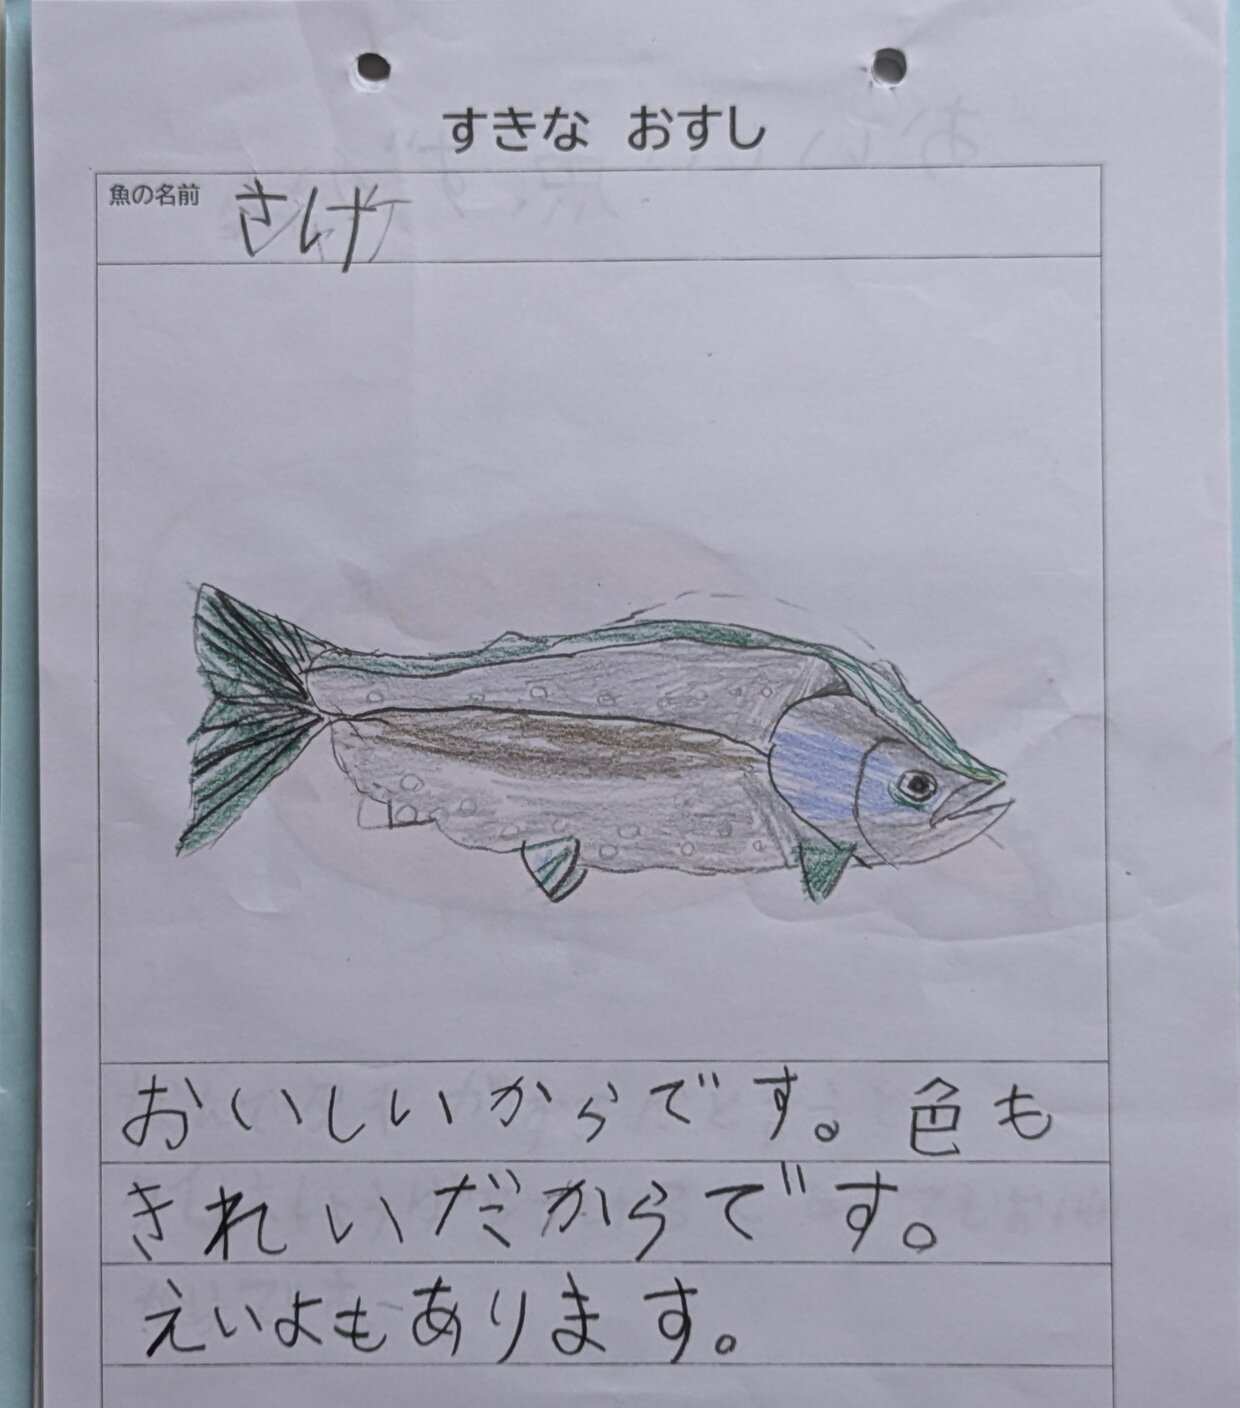 すきな おすし
魚の名前 さけ
おいしいからです。色も
きれいだからです。
えいよもあります。